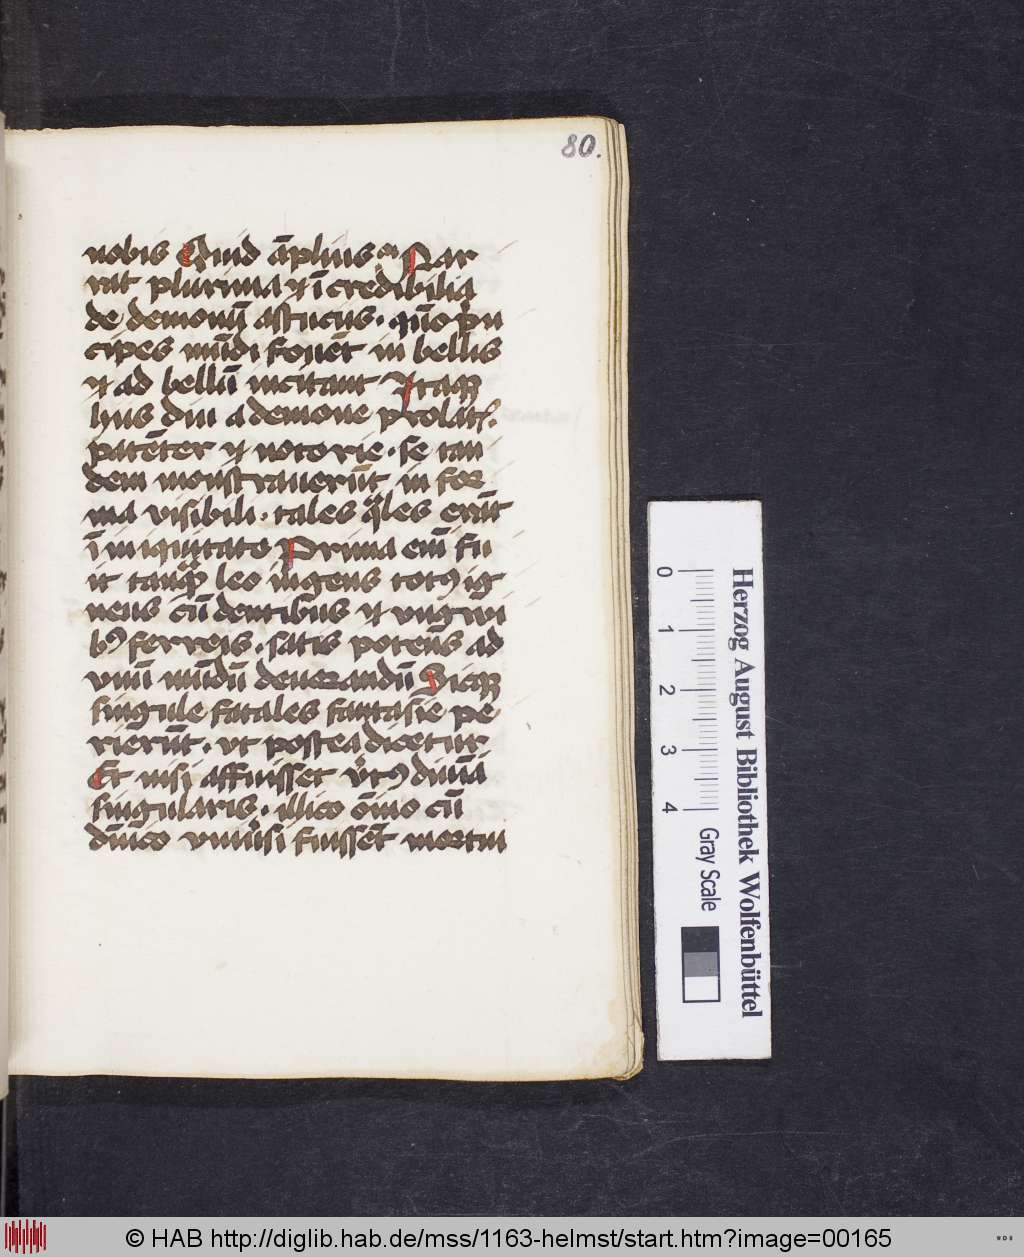 80.
nobis Quid āplius. Nar
rat plurima et īcredibilia
de demonū astuciis. quō prin
cipes mūdi fouēt in bellis
et ad bellū incitant Itaque
hiis diu a demone prolatis.
patēter et notorie. se tan
dem monstrauerūt in for
ma visibili. tales q̄les erāt
ī iniquitate Prima em̄ fu
it tanq̄ leo ingens totus ig
neus cū dentibus et vngwi
bꝰ ferreis. satis potens ad
vnū mūdū deuorandū Sicque
singule fatales fantasie pe
rierūt. vt postea dicetur
Et nisi affuisset virtus diuīa
singularis. illico ōnīo cū
dūico vniuersi fuissēt mortui
Herzog August Bibliothek Wolfenbüttel
0 1 2 3 4 Gray Scale
© HAB http://diglib.hab.de/mss/1163-helmst/start.htm?image=00165